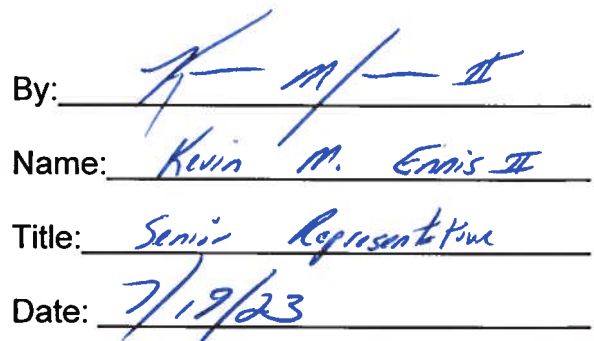 By: K M II
Name: Kevin M. Ennis II
Title: Senior Representative
Date: 7/19/23